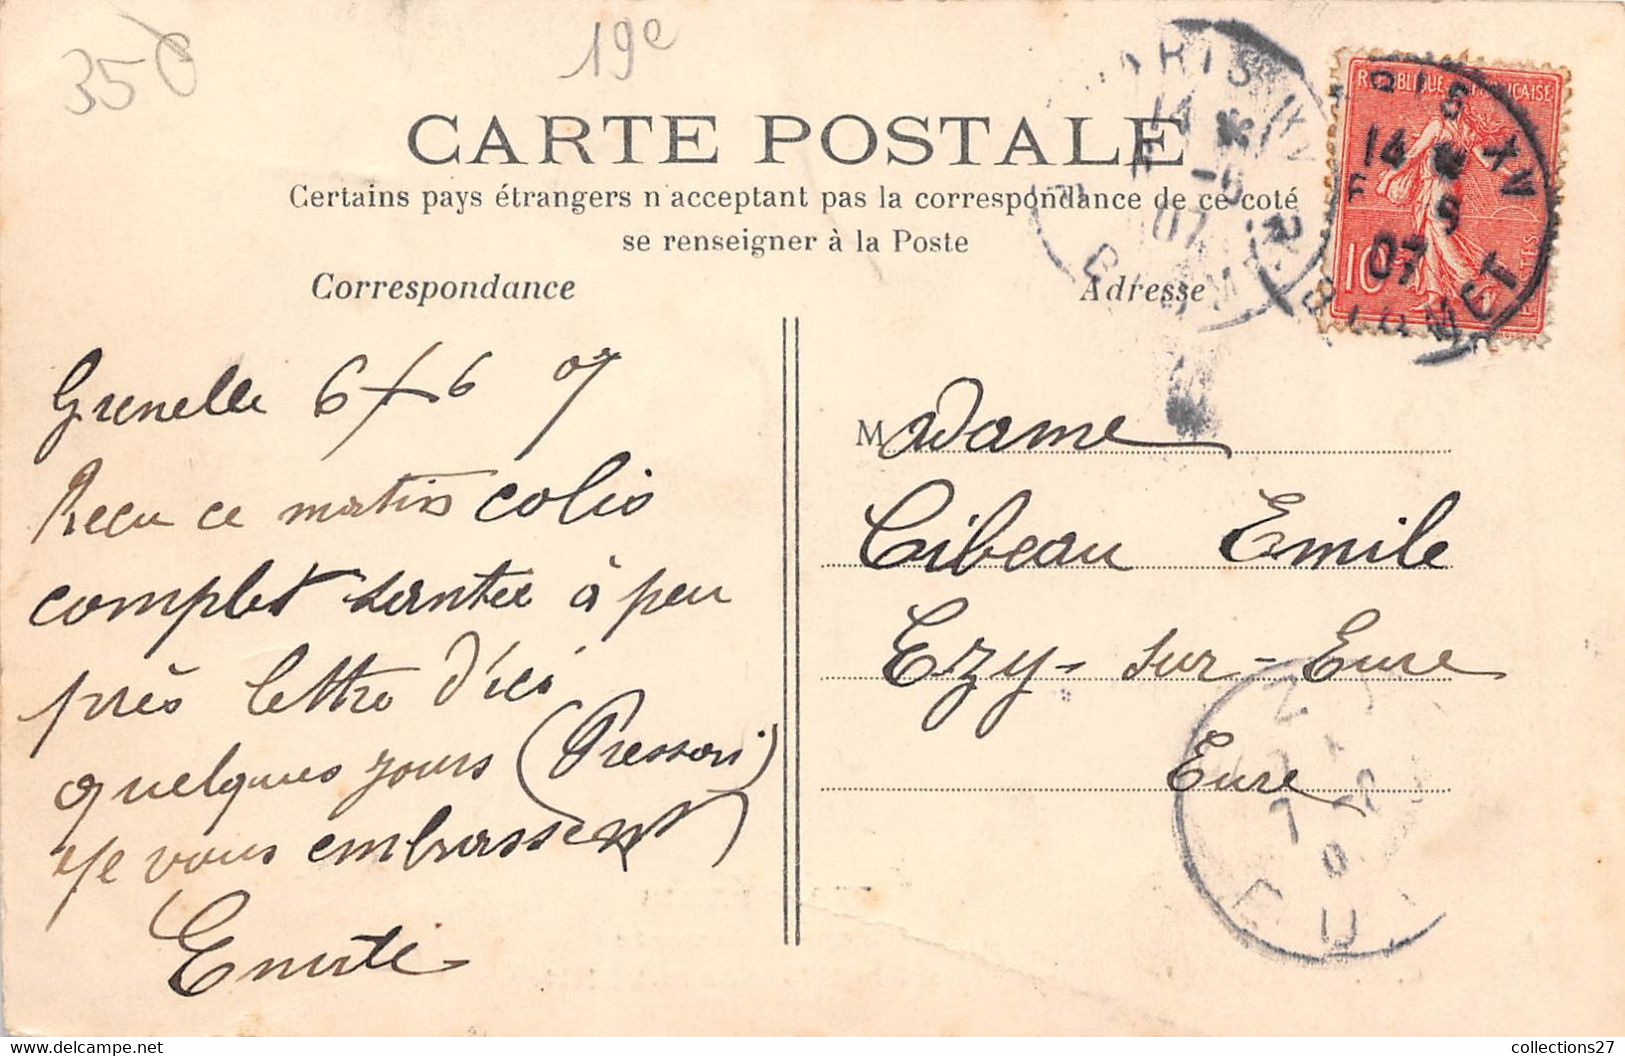 35€
19e
CARTE POSTALE
Certains pays étrangers n'acceptent pas la correspondance de ce coté
se renseigner à la Poste
Correspondance
Adresse
PARIS XV
14
-6
07
R. BLOMET
REPUBLIQUE FRANÇAISE
10c
POSTES
Grenelle 6 + 6 07
Recu ce matin colis
complet santée à peu
près lettre d'ici
quelques jours (Pressoni)
Je vous embrassent
Madame
Cibeau Emile
Ezy-sur-Eure
Eure
7
EURE
collections27